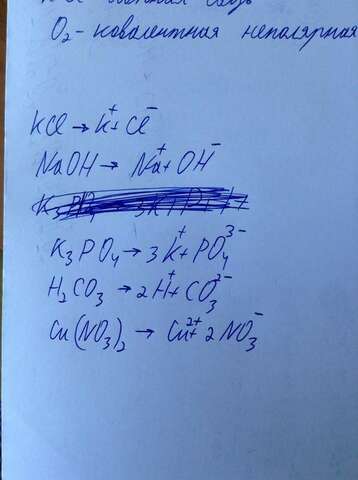 O₂ - ковалентная неполярная
KCl → K⁺ + Cl⁻
NaOH → Na⁺ + OH⁻
K₃PO₄ → 3K⁺ + PO₄³⁻
H₂CO₃ → 2H⁺ + CO₃²⁻
Cu(NO₃)₂ → Cu²⁺ + 2NO₃⁻